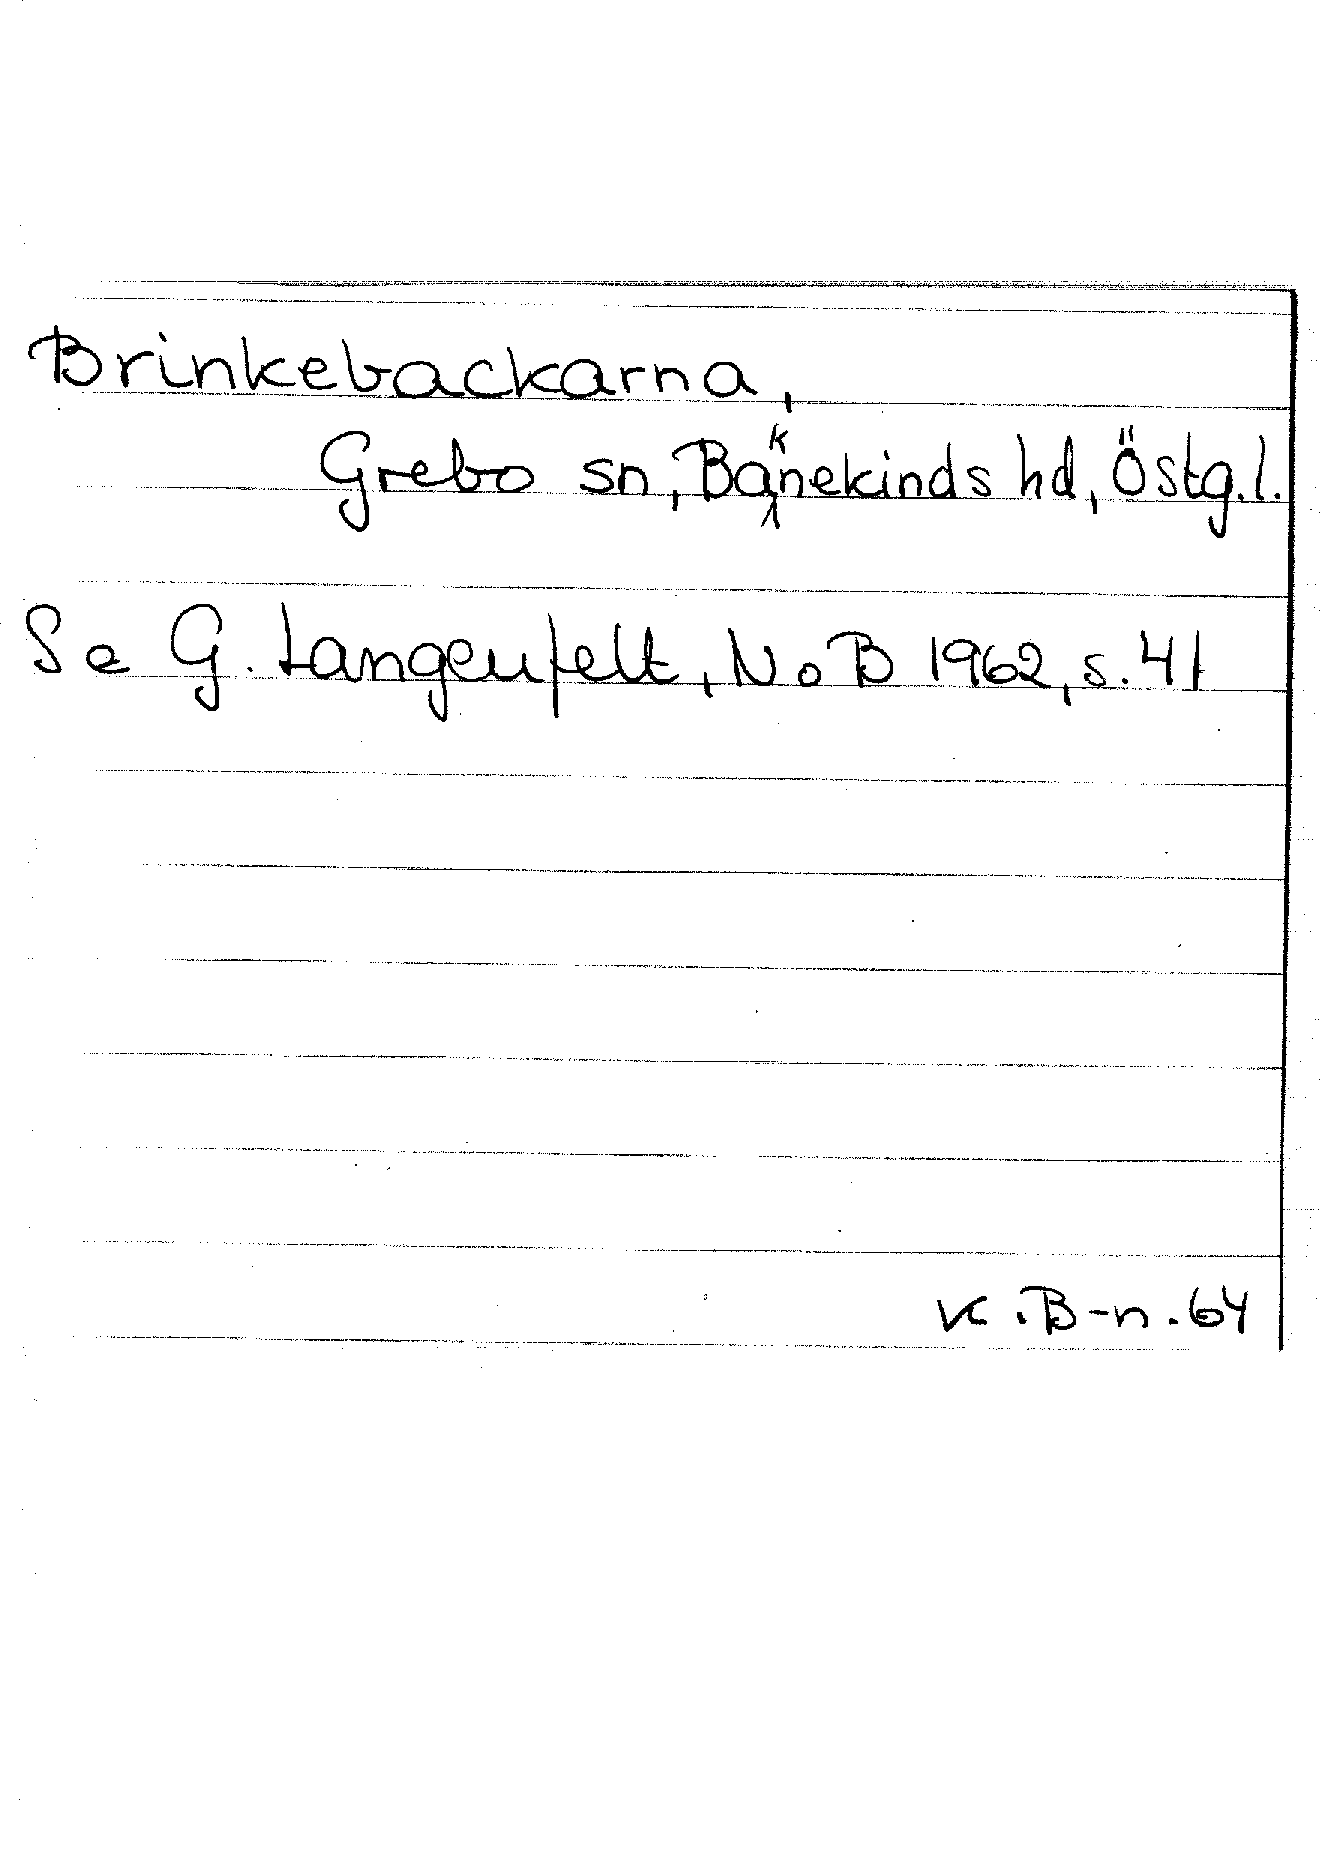 Brinkebackarna,
Grebo sn, Baknekinds hd, Östg.l.
Se G. Langenfelt, NoB 1962, s. 41
K. B-n. 64